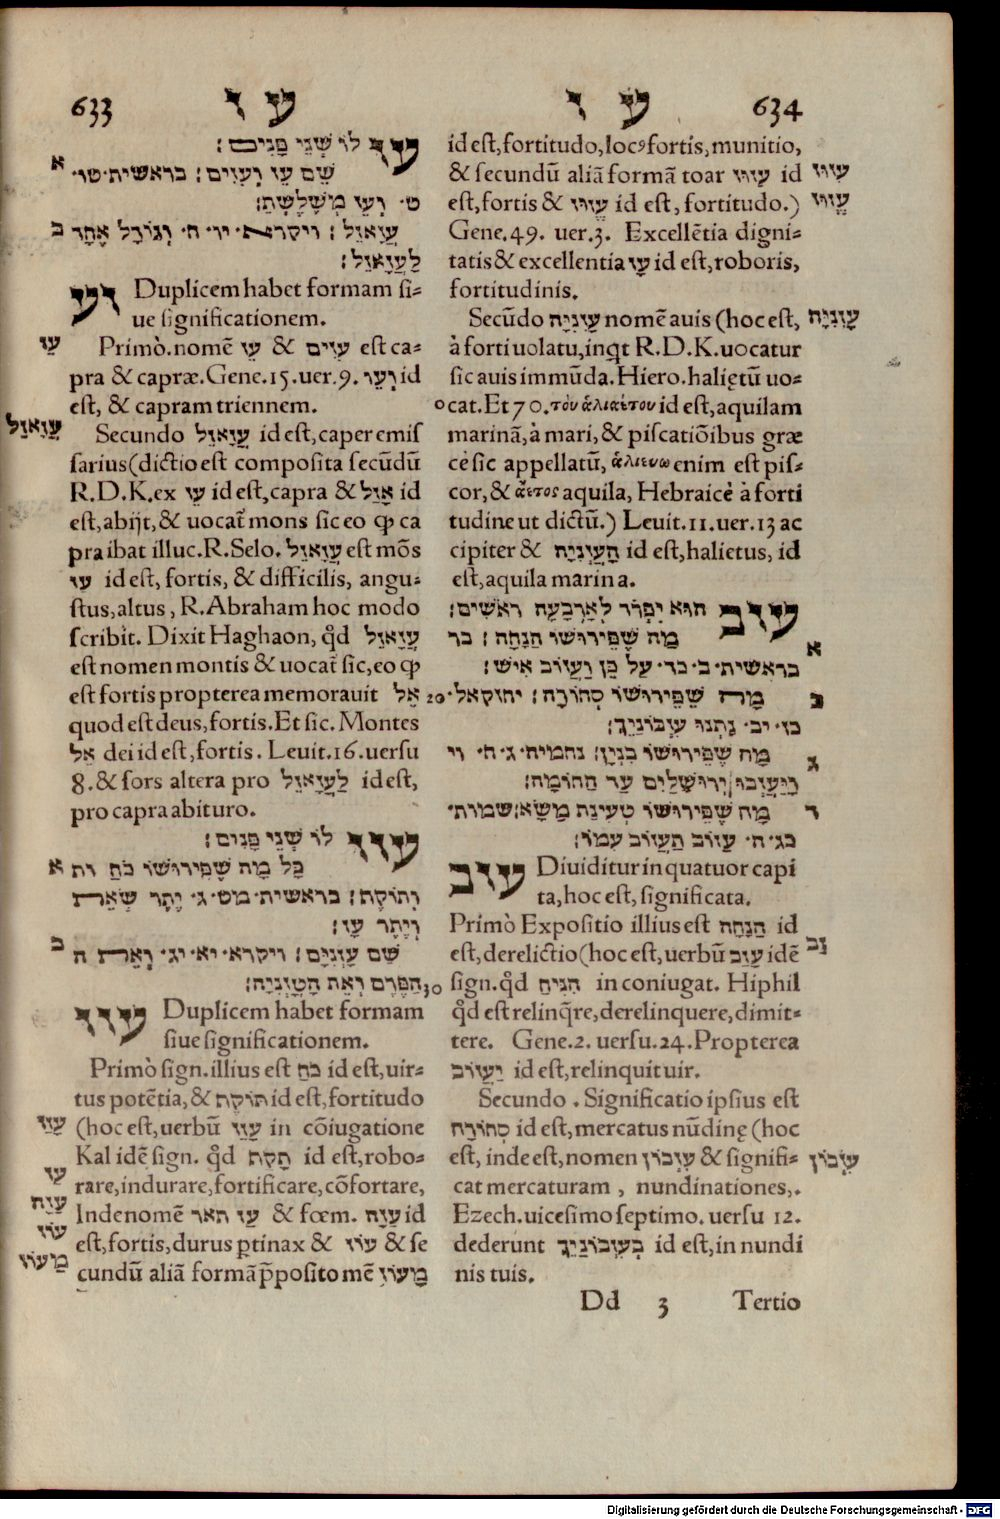 633 ע ז
עז לו שני פנים׃
א שם עז ועזים׃ בראשית·טו·
ט· ועז משלשת׃
עזאזל׃ ויקרא·יו·ח· וגורל אחד ב
לעזאזל׃
עז Duplicem habet formam si-
ue significationem.
עז Primò.nomẽ עז & עזים est ca-
pra & capræ.Gene.15.uer.9. ועז id
est, & capram triennem.
עזאזל Secundo עזאזל id est,caper emis
sarius(dictio est composita secũdũ
R.D.K.ex עז id est,capra & אזל id
est,abijt,& uocat̃ mons sic eo ꝙ ca
pra ibat illuc.R.Selo. עזאזל est mõs
עז id est, fortis, & difficilis, angu-
stus,altus, R.Abraham hoc modo
scribit. Dixit Haghaon, q̊d עזאזל
est nomen montis & uocat̃ sic,eo ꝙ
est fortis propterea memorauit אל
quod est deus, fortis.Et sic. Montes
אל dei id est, fortis. Leuit.16.uersu
8.& sors altera pro לעזאזל id est,
pro capra abituro.
עזז לו שני פנים׃
כל מה שפירושו כח ות א
ותוקף׃ בראשית·מט·ג· יתר שאת
ויתר עז׃
ב שם עזניה׃ ויקרא·יא·יג· ואת ה
הפרס ואת העזניה׃
עזז Duplicem habet formam
siue significationem.
Primò sign.illius est כח id est,uir-
tus potẽtia,& תוקף id est, fortitudo
עזז (hoc est,uerbũ עזז in cõiugatione
Kal idẽ sign. q̊d חזק id est,robo-
עז rare,indurare,fortificare,cõfortare,
עזה Inde nomẽ עז תאר & fœm. עזה id
עוז est,fortis,durus ꝑtinax & עוז & se
מעוז cundũ aliã formã p̃posito mẽ מעוז
ע ז 634
id est, fortitudo, locꝰ fortis, munitio,
& secundũ aliã formã toar עזוז id עזוז
est,fortis & עזוז id est, fortitudo.) עזוז
Gene.49. uer.3. Excellẽtia digni-
tatis & excellentia עז id est,roboris,
fortitudinis.
Secũdo עזניה nomẽ auis (hoc est, עזניה
à forti uolatu,inqt R.D.K.uocatur
sic auis immũda. Hiero.haliętũ uo-
cat.Et 70.τὸν ἁλιαίετον id est,aquilam
marinã,à mari, & piscatiõibus græ
cè sic appellatũ, ἁλιεύω enim est pis-
cor, & ἀετος aquila, Hebraicè à forti
tudine ut dictũ.) Leuit.11.uer.13 ac
cipiter & העזניה id est,halietus, id
est,aquila marina.
עזב הוא יפרד לארבעה ראשים׃
מה שפירושו הנחה׃ בר א
בראשית·ב·כד· על כן יעזוב איש׃
20 מה שפירושו סחורה׃ יחזקאל· ב
כז·יב· נתנו עזבוניך׃
מה שפירושו בנין׃ נחמיה·ג·ח· וי ג
ויעזבו ירושלים עד החומה׃
מה שפירושו טעינת משא׃ שמות· ד
כג·ה· עזוב תעזוב עמו׃
עזב Diuiditur in quatuor capi
ta, hoc est, significata.
Primò Expositio illius est הנחה id
est,derelictio(hoc est,uerbũ עזב idẽ עזב
30 sign.q̊d הניח in coniugat. Hiphil
q̊d est relinq̃re,derelinquere,dimit-
tere. Gene.2. uersu.24.Propterea
יעזוב id est,relinquit uir.
Secundo . Significatio ipsius est
סחורה id est,mercatus nũdinę (hoc
est, inde est,nomen עזבון & signifi- עזבון
cat mercaturam , nundinationes,.
Ezech.uicesimo septimo. uersu 12.
dederunt בעזבוניך id est,in nundi
nis tuis.
Dd 3 Tertio
Digitalisierung gefördert durch die Deutsche Forschungsgemeinschaft - DFG